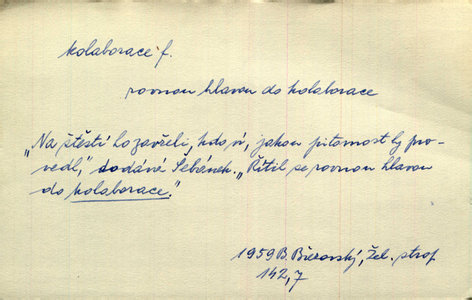 kolaborace f.
rovnou hlavou do kolaborace
„Na štěstí ho zavřeli, kdo ví, jakou pitomost by pro-
vedl,“ dodává Šebánek. „Řítil se rovnou hlavou
do kolaborace.“
1959 B. Březovský, Žel. strop
142,7